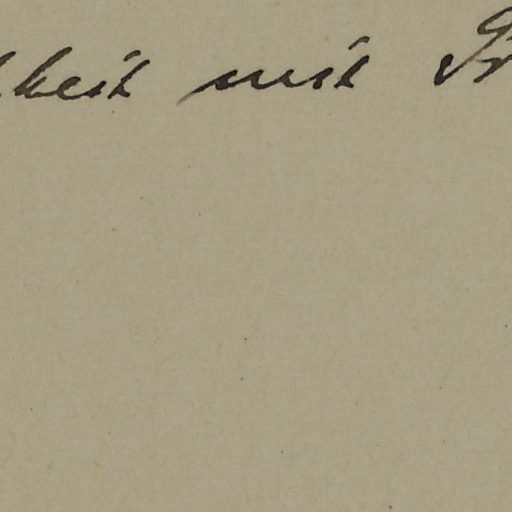 keit mit